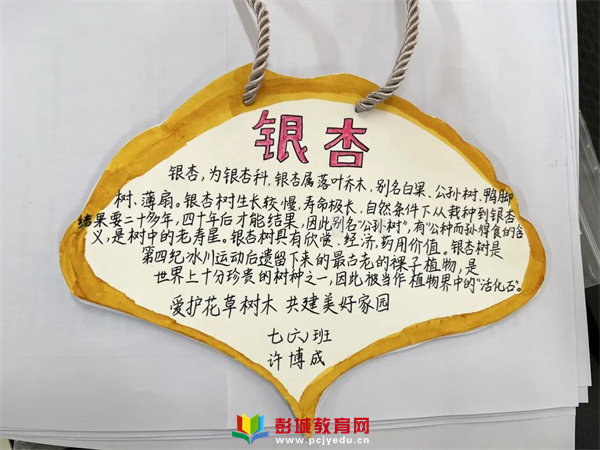 银杏
银杏，为银杏科，银杏属落叶乔木，别名白果、公孙树、鸭脚
树、薄扇。银杏树生长较慢，寿命极长，自然条件下从栽种到银杏
结果要二十多年，四十年后才能结果，因此别名“公孙树”，有“公种而孙得食”的含
义，是树中的老寿星。银杏树具有欣赏、经济，药用价值。银杏树是
第四纪冰川运动后遗留下来的最古老的裸子植物，是
世界上十分珍贵的树种之一，因此被当作植物界中的“活化石”。
爱护花草树木 共建美好家园
七（六）班
许博成
彭城教育网
www.pcjyedu.cn